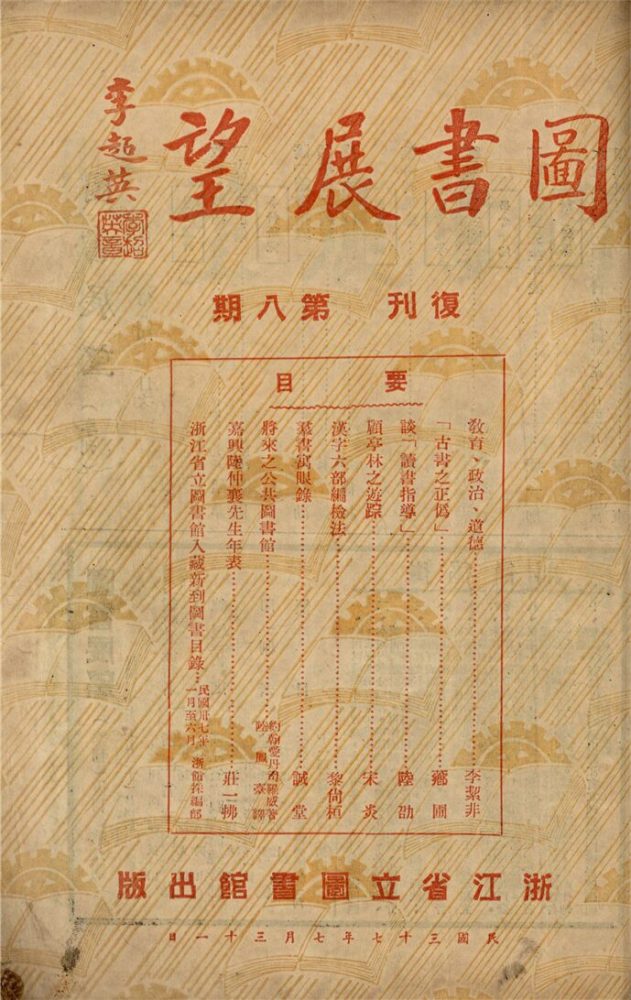 圖書展望
李超英
李超英章
復刊 第八期
要目
教育、政治、道德……李絜非
「古書之正僞」……藏園
談「讀書指導」……陸劭
顧亭林之遊踪……宋炎
漢字六部編檢法……黎尙桓
羣書寓眼錄……誠堂
將來之公共圖書館……約翰愛丹 羅威著 陸 臺譯
嘉興陸仲襄先生年表……莊一拂
浙江省立圖書館入藏新到圖書目錄…民國卅七年一月至六月 浙館採編部
浙江省立圖書館出版
民國三十七年七月三十一日